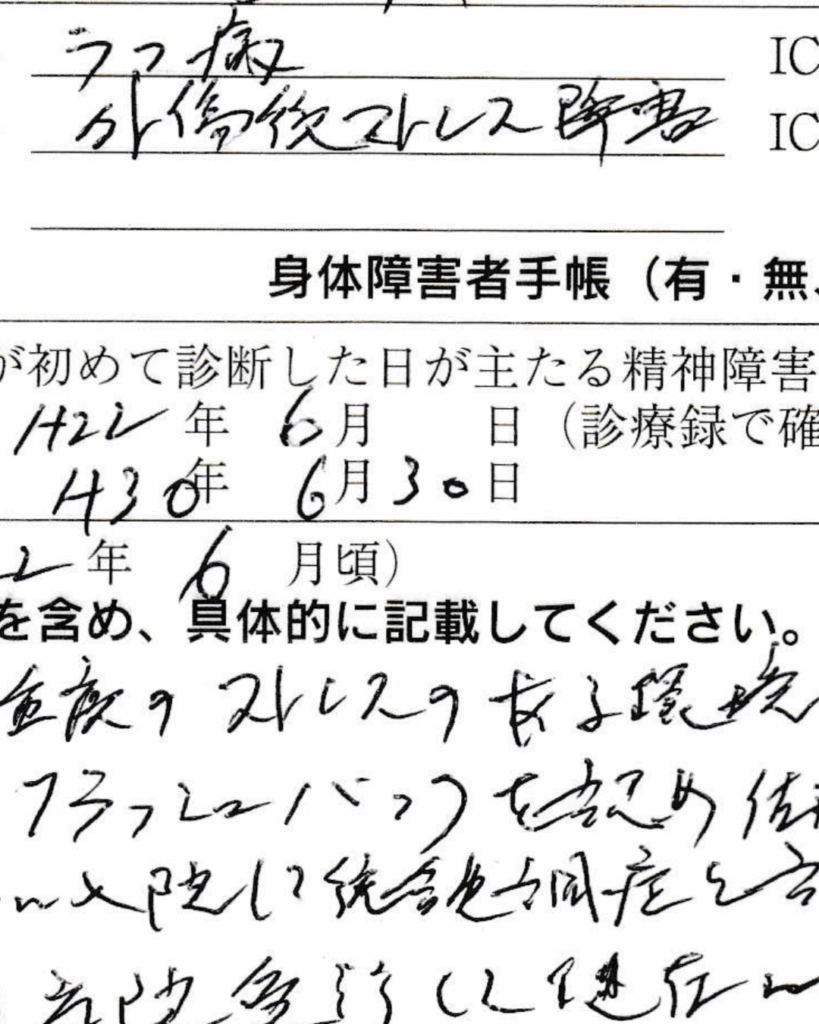 うつ病 IC
外傷後ストレス障害 IC
身体障害者手帳（有・無、
が初めて診断した日が主たる精神障害
H22年 6月 日（診療録で確
H30年 6月30日
2年 6 月頃）
を含め、具体的に記載してください。
重度のストレスの ある環境
フラッシュバックを認め
入院して統合失調症と